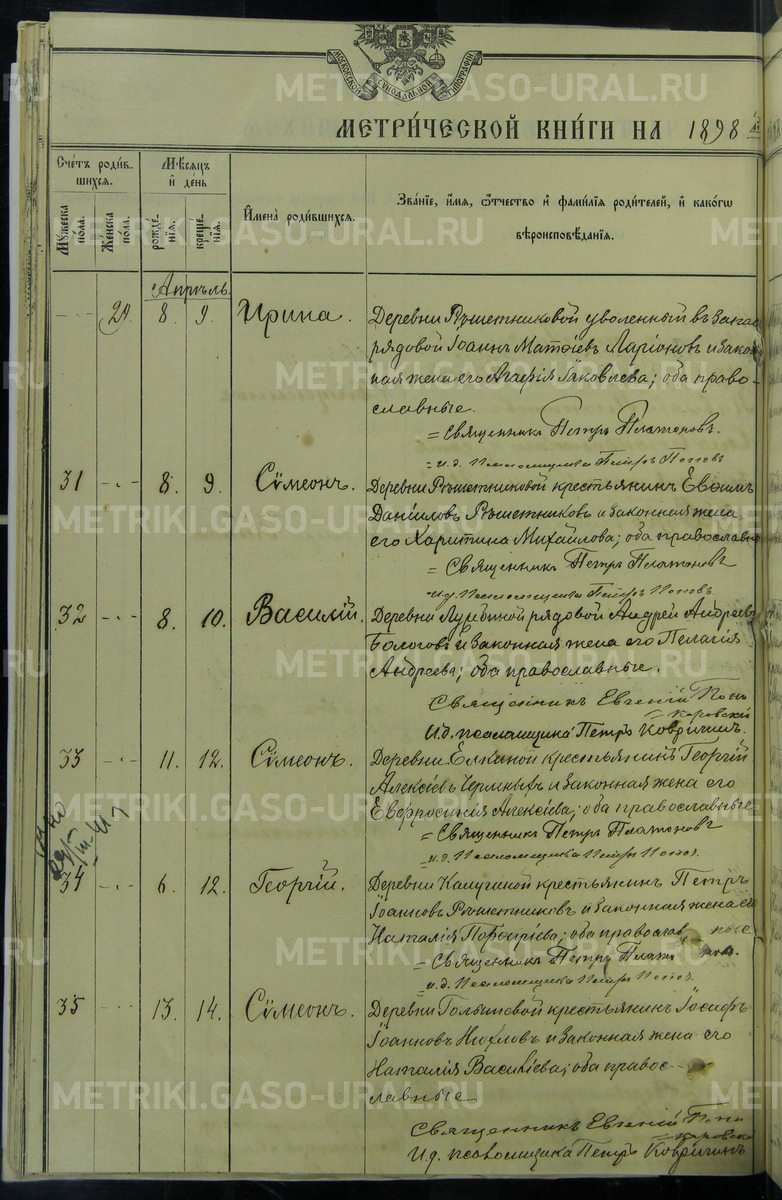 МОСКОВСКОЙ СѴНОДАЛЬНОЙ ТИПОГРАФІИ
МЕТРИ́ЧЕСКОЙ КНИ́ГИ НА 1898 й
Сче́тъ роди́в-
шихся.
Мѣ́сяцъ
и҆ день
Му́жеска по́ла.
Же́нска по́ла.
рожде́-
нїя.
креще́-
нїя.
И҆мена̀ роди́вшихся.
Зва́нїе, и҆́мѧ, ѻ҆́тчество и҆ фами́лїѧ роди́телей, и҆ како́гѡ
вѣроисповѣ́данїѧ.
Апрѣль.
29. 8. 9. Ирина. Деревни Рѣшетниковой уволенный въ запас
рядовой Іоаннъ Матѳіевъ Ларіоновъ и закон
ная жена его Агафія Іаковлева; оба право-
славные.
= Священникъ Петръ Платоновъ.
= и. д. псаломщика Петръ Поповъ
31 8. 9. Сѵмеонъ. Деревни Рѣшетниковой крестьянинъ Евѳимъ
Даніиловъ Рѣшетниковъ и законная жена
его Харитина Михайлова; оба православн
= Священникъ Петръ Платоновъ
= и. д. псаломщика Петръ Поповъ
32 8. 10. Василій. Деревни рядовой Андрей Андреевъ
Бологовъ и законная жена его Пелагія
Андреева; оба православные.
Священникъ Евгеній Поно
маровскій
И. д. псаломщика Петръ
33 11. 12. Сѵмеонъ. Деревни Елкиной крестьянинъ Георгій
Алексіевъ Черныхъ и законная жена его
Евфросинія Алексіева; оба православные
= Священникъ Петръ Платоновъ
= и. д. псаломщика Петръ Попов.
34 6. 12. Георгій. Деревни Калугиной крестьянинъ Петръ
Іоанновъ Рѣшетниковъ и законная жена его
Наталія Порфиріева; оба правосла
= Священникъ Петръ Плат нов.
= и. д. псаломщика Петръ Попов.
35 13. 14. Сѵмеонъ. Деревни крестьянинъ Іосифъ
Іоанновъ и законная жена его
Наталія Василіева; оба правос-
лавные
Священникъ Евгеній Поно
маровскій
И. д. псаломщика Петръ
METRIKI.GASO-URAL.RU